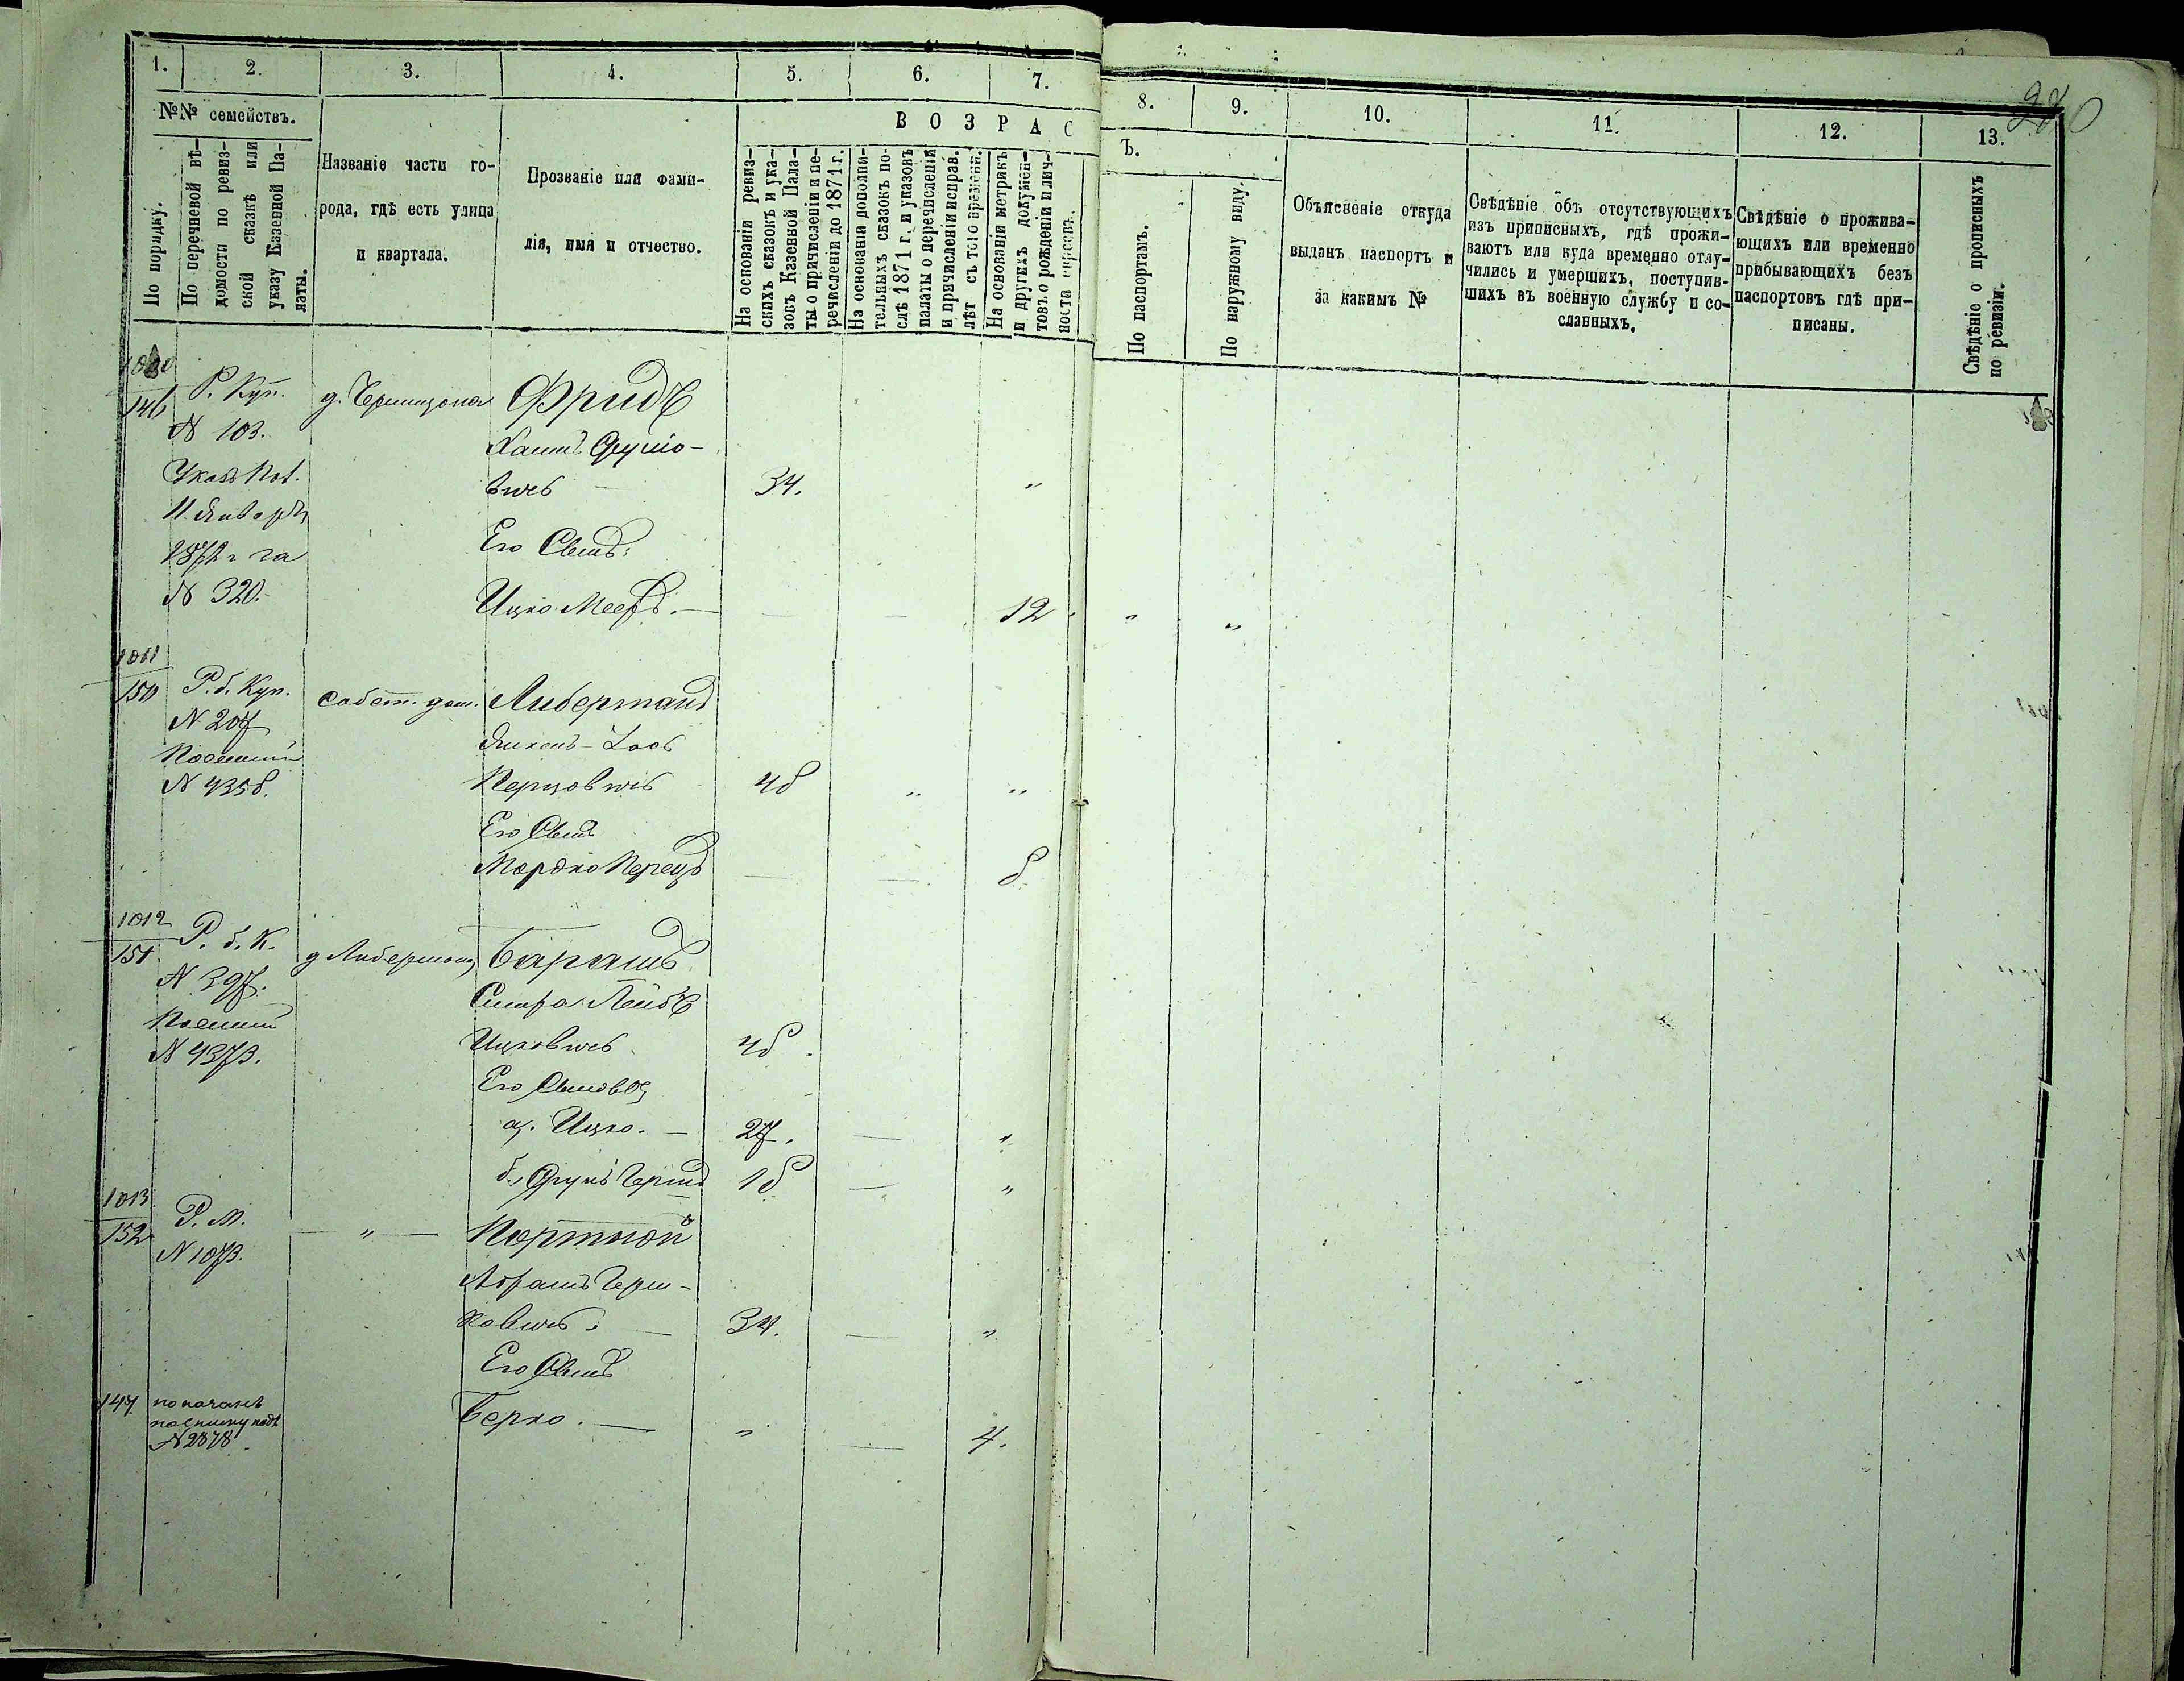 1.
2.
3.
4.
5.
6.
7.
8.
9.
10.
11.
12.
13.
№№ семействъ.
По порядку.
По перечневой вѣ-
домости по ревиз-
ской сказкѣ или
указу Казенной Па-
латы.
Названіе части го-
рода, гдѣ есть улица
и квартала.
Прозваніе или фами-
лія, имя и отчество.
ВОЗРАС
Ъ.
На основаніи ревиз-
скихъ сказокъ и ука-
зовъ Казенной Пала-
ты о причисленіи и пе-
речисленіи до 1871 г.
На основаніи дополни-
тельныхъ сказокъ по-
слѣ 1871 г. и указовъ
палаты о перечисленіи
и причисленіи исправ.
лѣт съ того времени.
На основаніи метрикъ
и другихъ докумен-
товъ о рожденіи и лич-
ности евреевъ.
По паспортамъ.
По наружному виду.
Объясненіе откуда
выданъ паспортъ и
за какимъ №
Свѣдѣніе объ отсутствующихъ
изъ приписныхъ, гдѣ прожи-
ваютъ или куда временно отлу-
чились и умершихъ, поступив-
шихъ въ военную службу и со-
сланныхъ.
Свѣдѣніе о прожива-
ющихъ или временно
прибывающихъ безъ
паспортовъ гдѣ при-
писаны.
Свѣдѣніе о прописныхъ
по ревизіи.
146 Р. Куп. Фридъ
N 103.
Хаимъ Сруліо-
Указъ Пол. вичъ — 34. "
11. Января
1872 г за Его Сынъ:
N 320. Ицко Мееръ. — — — 12 " "
1011
150 Р. б. Куп. Собст. дом. Либерманъ
N 207 Янкель-Іосъ
N 4358. Перцовичъ 48 " "
Его Сынъ
Мордко Перецъ — — 8
1012
151 Р. б. К. д Либермана Барашъ
N 397. Лейбъ
N 4373. Ицковичъ 48.
Его Сыновья
а, Ицко. — 27. — "
б, Срулъ Герш 18 — "
1013
152 Р. М. — " — Портной
N 1073.
Абрамъ Герш-
ковичъ. — 34. — "
Его Сынъ
147 Берко. — " — 4.
N 2878.